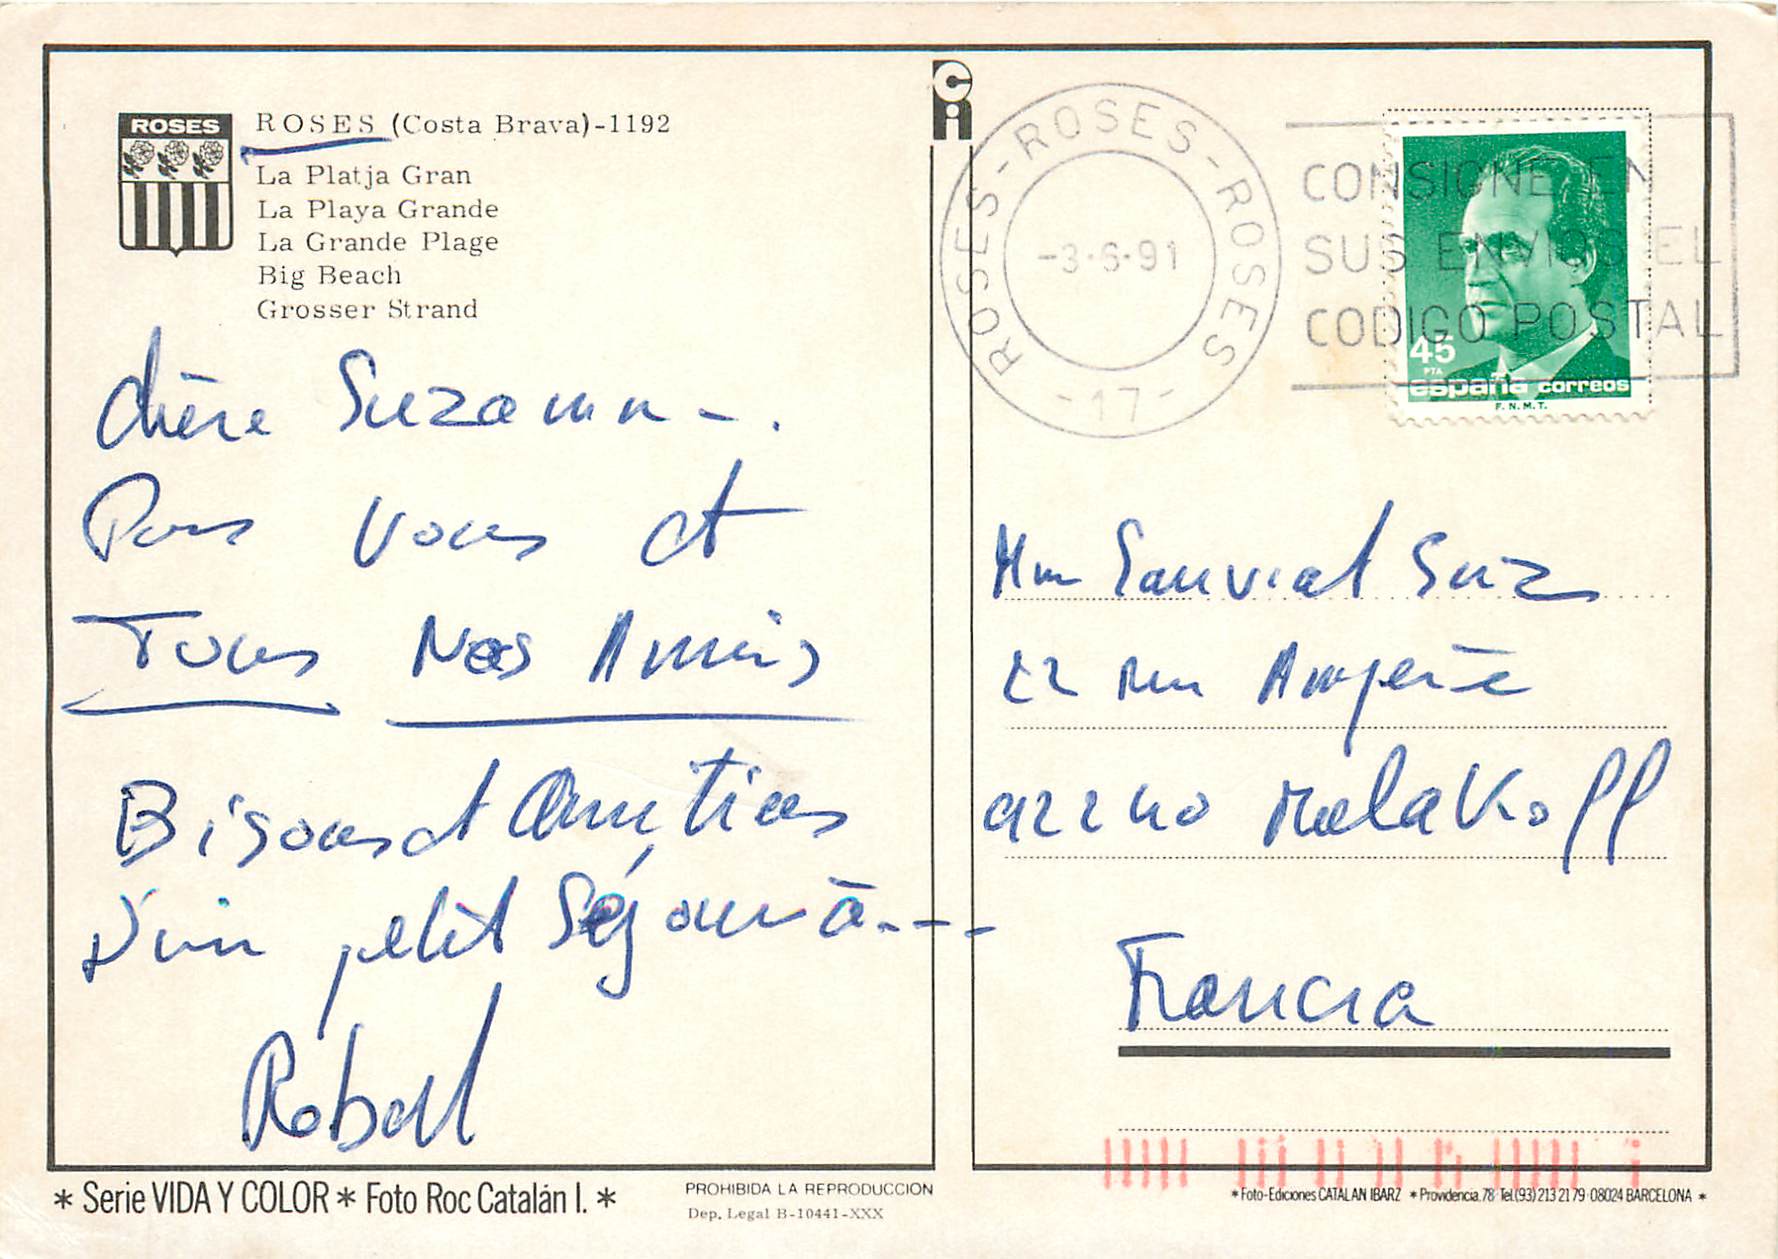 ROSES
ROSES (Costa Brava)-1192
La Platja Gran
La Playa Grande
La Grande Plage
Big Beach
Grosser Strand
Chère Suzann - .
Pour vous et
Tous Nos Amis
Bisous et Amitiés
D'un petit Séjour à ----
Robert
ROSES-ROSES-ROSES-ROSES
-3·6·91
-17-
CONSIGNE EN
SUS ENVIOS EL
CODIGO POSTAL
45
PTA
españa correos
F.N.M.T.
Mm Sauvial Suz
22 rue Ampère
92240 Malakoff
Francia
* Serie VIDA Y COLOR * Foto Roc Catalán I. *
PROHIBIDA LA REPRODUCCION
Dep. Legal B-10441-XXX
*Foto-Ediciones CATALAN IBARZ *Providencia,78 Tel.(93) 213 21 79-08024 BARCELONA *